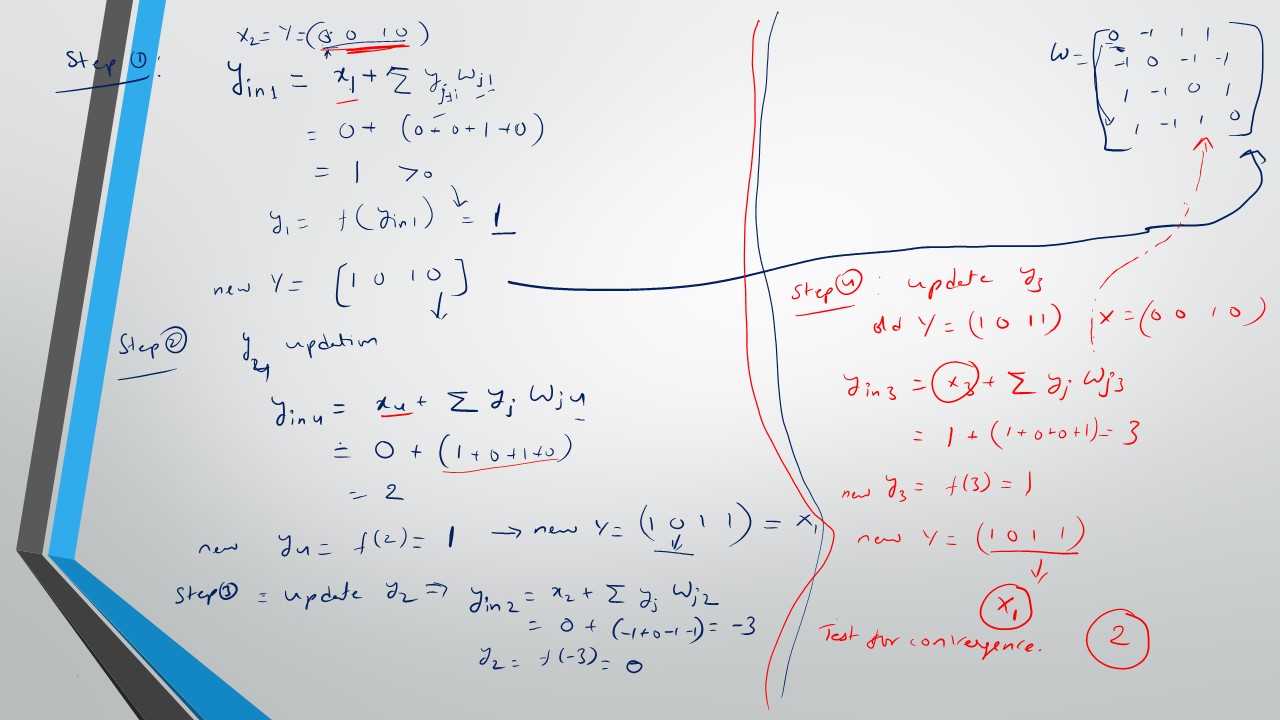 x₂ = Y = (0 0 1 0)
Step ①:
y_in1 = x₁ + Σ y_j w_j1
j≠i
= 0 + (0+0+1+0)
= 1 >0
y₁ = f(y_in1) = 1
new Y = [1 0 1 0]
Step ② y₄ updation
y_in4 = x₄ + Σ y_j W_j4
= 0 + (1+0+1+0)
= 2
new y₄ = f(2) = 1 → new Y = (1 0 1 1) = x₁
Step ③ = update y₂ ⇒ y_in2 = x₂ + Σ y_j W_j2
= 0 + (-1+0-1-1) = -3
y₂ = f(-3) = 0
W = [0 -1 1 1
-1 0 -1 -1
1 -1 0 1
1 -1 1 0]
Step ④: update y₃
old Y = (1 0 1 1) X = (0 0 1 0)
y_in3 = x₃ + Σ y_j W_j3
= 1 + (1+0+0+1) = 3
new y₃ = f(3) = 1
new Y = (1 0 1 1)
x₁
Test for convergence. 2